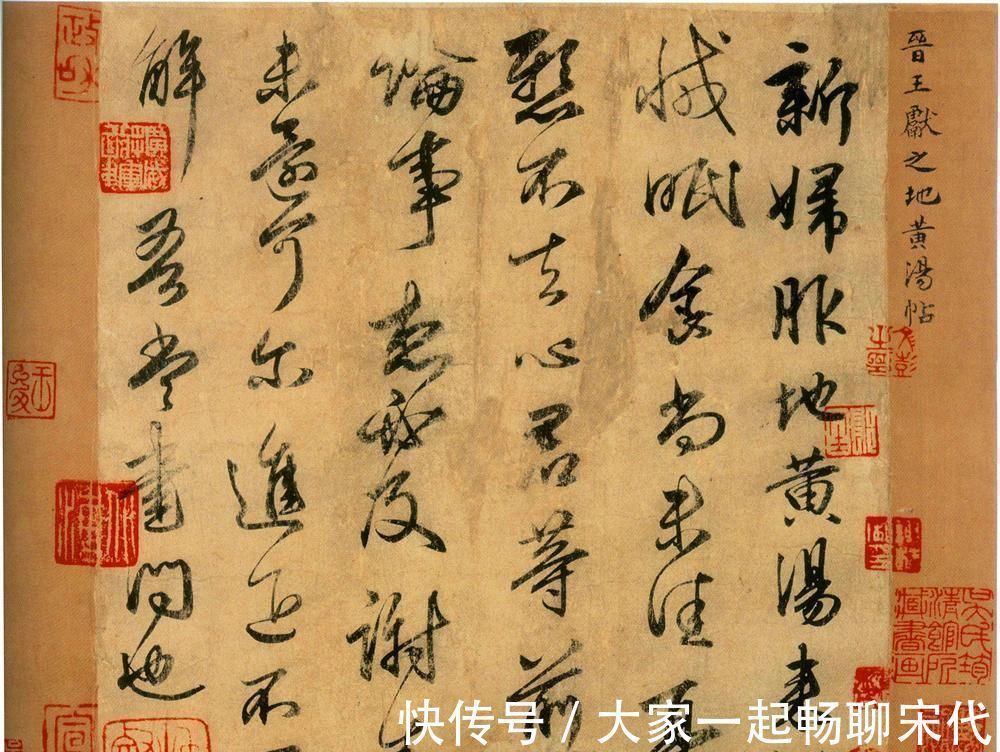 晉王獻之地黄湯帖
新婦服地黄湯来
減眠食尚未佳
懸不去心君等前
論事想必及謝
未還可爾進退不
解吾當書問也
政和
快传号 / 大家一起畅聊宋代